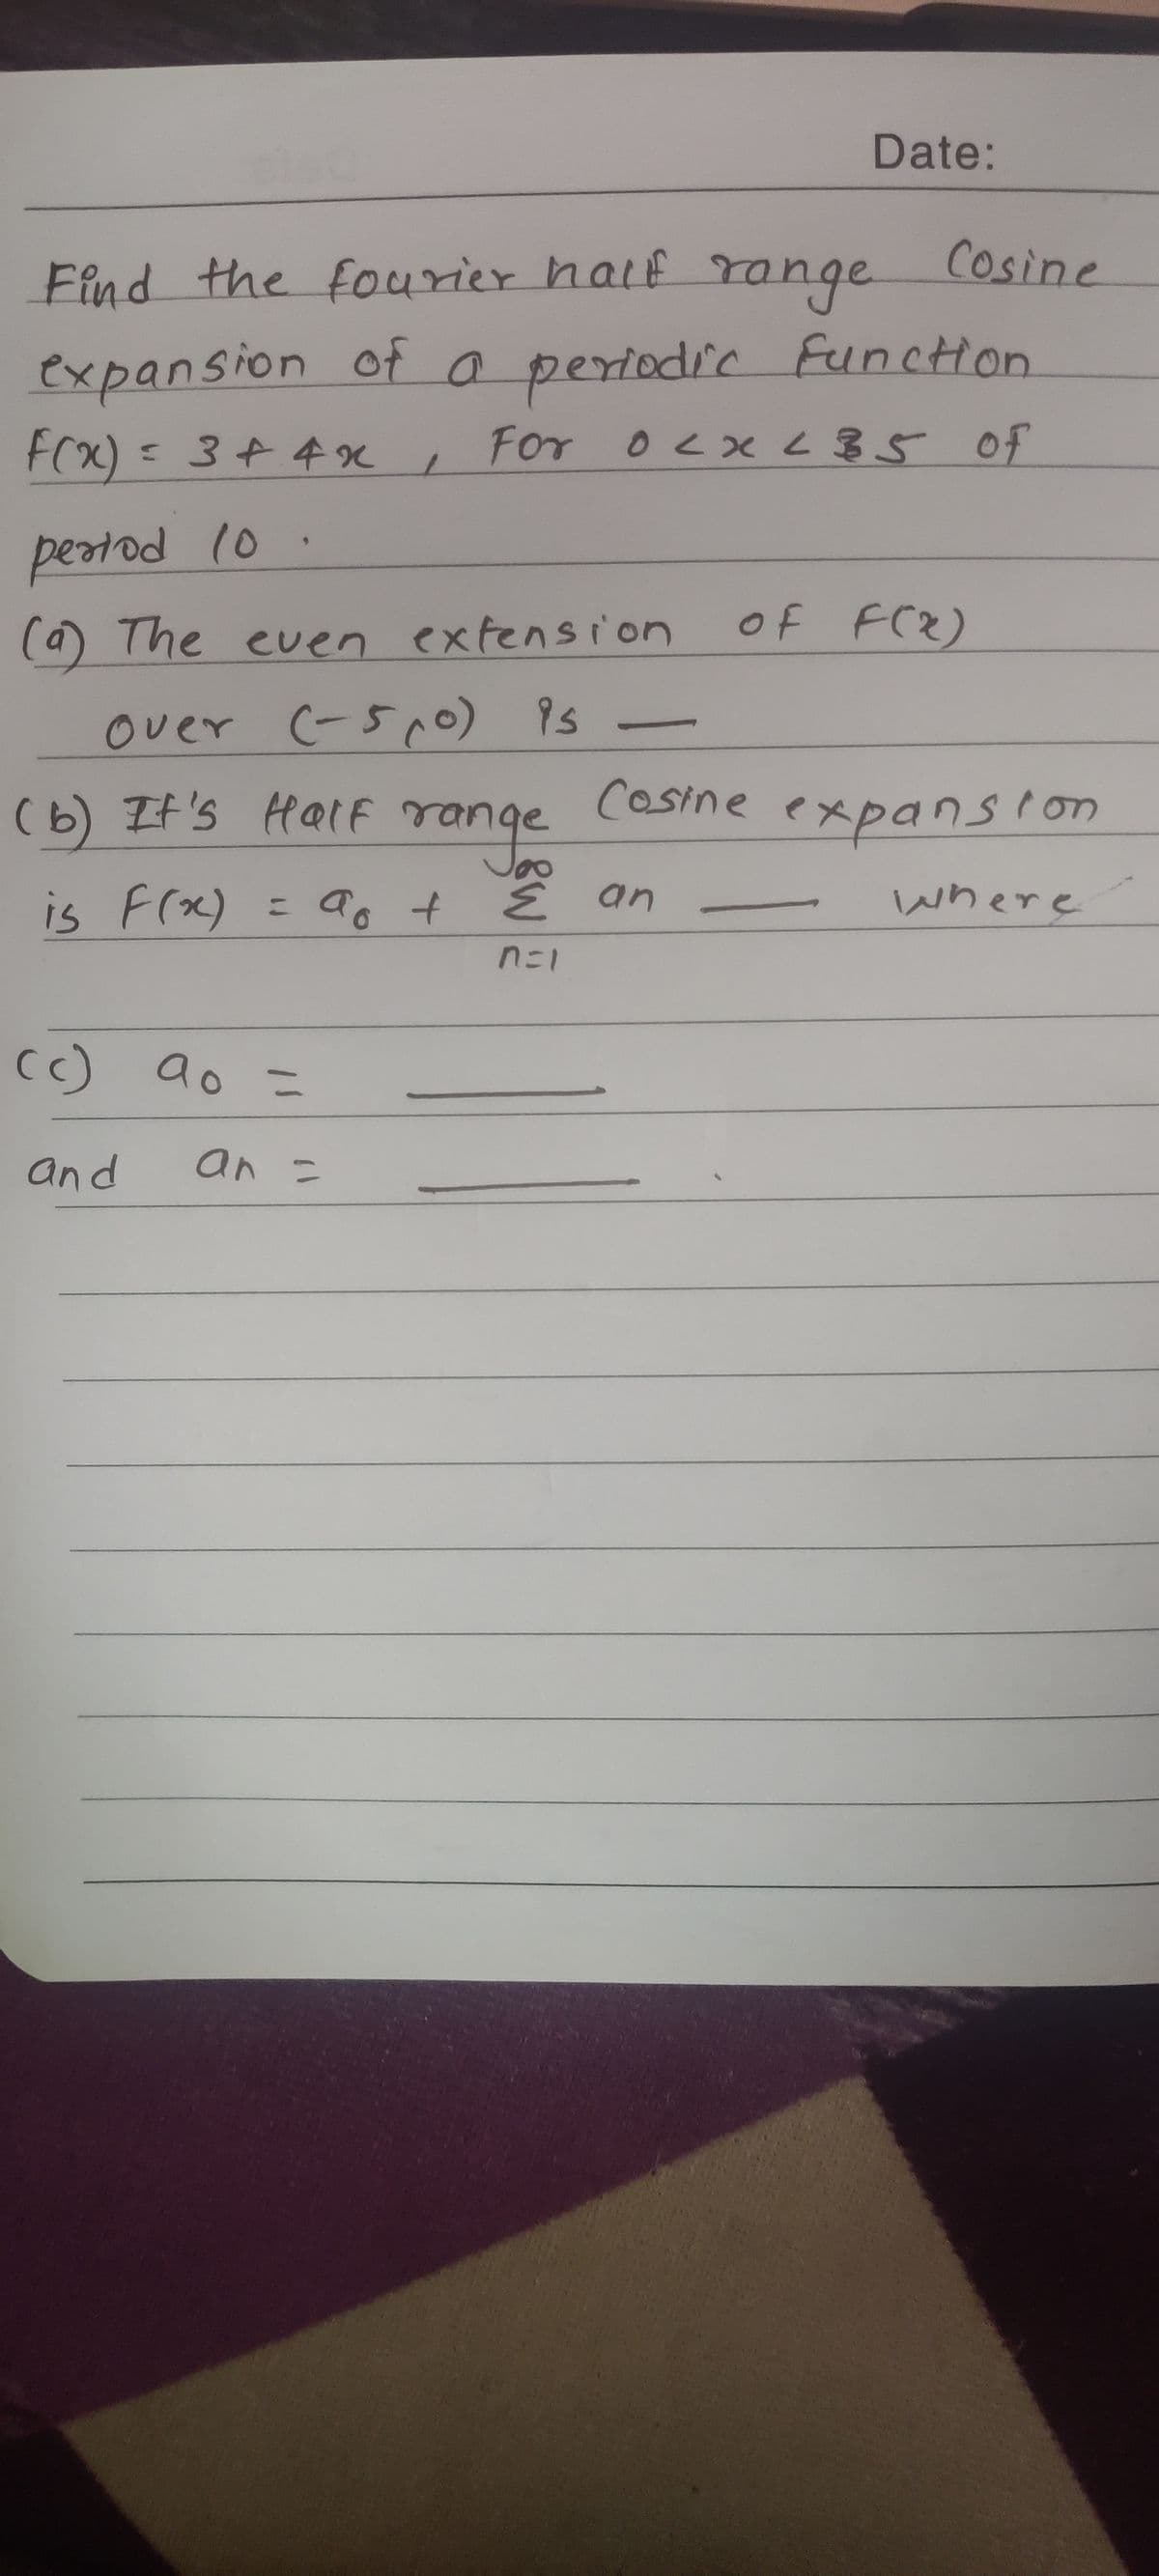 Date:
Find the fourier half range Cosine
expansion of a periodic function
f(x) = 3 + 4x , For 0 < x < 5 of
period 10 .
(a) The even extension of f(x)
over (-5,0) is —
(b) It's Half range Cosine expansion
is f(x) = a₀ + ∞ Σ n=1 an — where
(c) a₀ = —
and an = — .